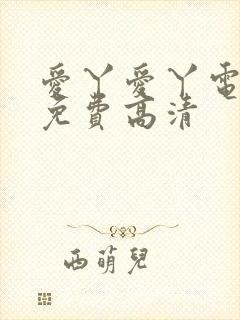 愛丫愛丫電
免費高清
西萌兒